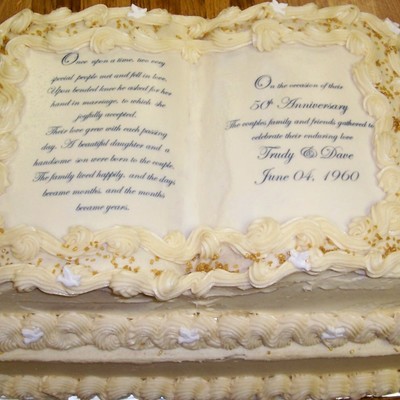 Once upon a time, two very
special people met and fell in love.
Upon bended knee he asked for her
hand in marriage, to which she
joyfully accepted.
Their love grew with each passing
day. A beautiful daughter and a
handsome son were born to the couple.
The family lived happily, and the days
became months, and the months
became years.
On the occasion of their
50th Anniversary
The couples family and friends gathered to
celebrate their enduring love
Trudy & Dave
June 04, 1960